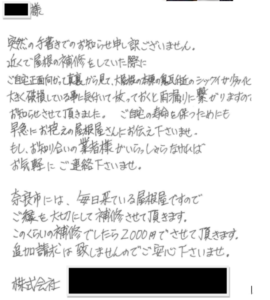 様
突然の手書きでのお知らせ申し訳ございません。
近くで屋根の補修をしていた際に
ご自宅正面向かって真裏から見て、大屋根の
大きく破損している事に気付いて、放っておくと雨漏りに繋がりますので
お知らせさせて頂きました。ご自宅の寿命を保つためにも
早急にお抱えの屋根屋さんにお伝え下さいませ。
もし、お知り合いの業者様がいらっしゃらなければ
お気軽にご連絡下さいませ。
奈良市には、毎日来ている屋根屋ですので
ご縁を大切にして補修させて頂きます。
このくらいの補修でしたら2000円でさせて頂きます。
追加請求は致しませんのでご安心下さいませ。
株式会社